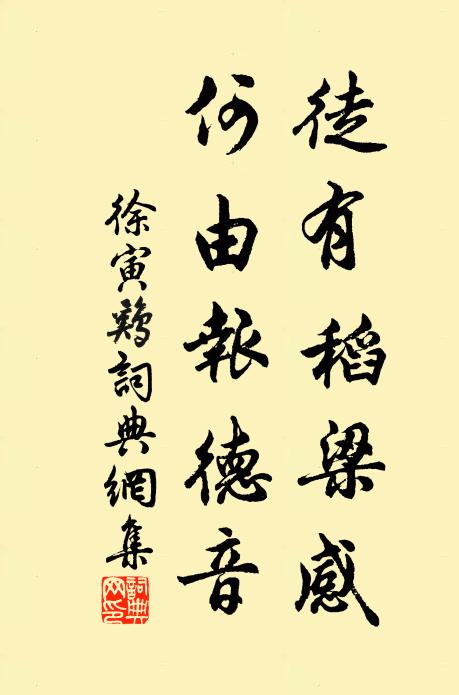 徒有稻梁感
何由報德音
徐寅鷄詞典網集
詞典
网印